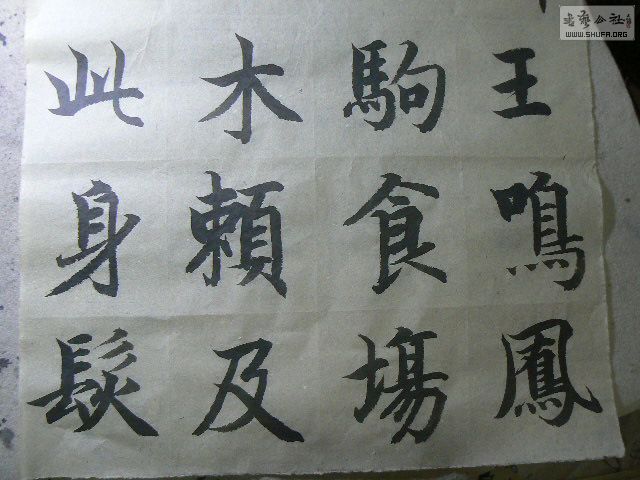 王鳴鳳
駒食場
木賴及
此身髮
书艺公社
WWW.SHUFA.ORG